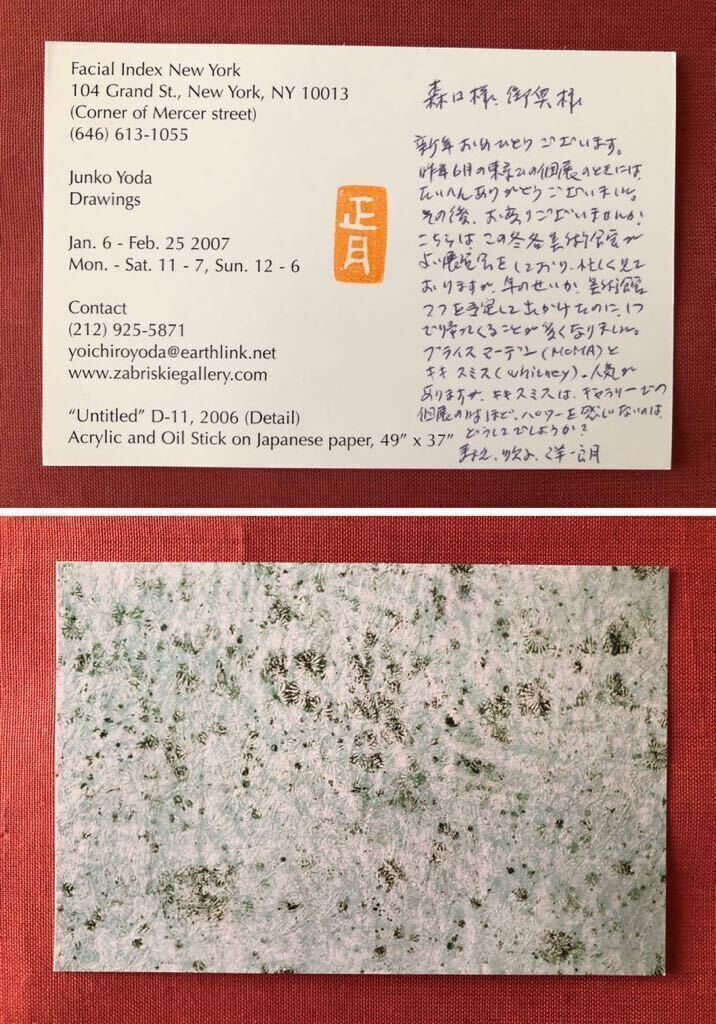 Facial Index New York
104 Grand St., New York, NY 10013
(Corner of Mercer street)
(646) 613-1055
Junko Yoda
Drawings
Jan. 6 - Feb. 25 2007
Mon. - Sat. 11 - 7, Sun. 12 - 6
Contact
(212) 925-5871
yoichiroyoda@earthlink.net
www.zabriskiegallery.com
“Untitled” D-11, 2006 (Detail)
Acrylic and Oil Stick on Japanese paper, 49” x 37”
正月
森口様、御奥様
新年おめでとうございます。
昨年6月の東京での個展のときには、
たいへんありがとうございました。
その後、お変りございませんか?
こちらはこの冬各美術館が
よい展覧会をしており、忙しく見て
おりますが、年のせいか、美術館
2つを予定して出かけたのに、1つ
で帰ってくることが多くなりました。
ブライスマーデン(MoMA)と
キキスミス(Whitney)。人気が
ありますが、キキスミスは、ギャラリーでの
個展の時ほど、パワーを感じないのは、
どうしてでしょうか?
洋一朗